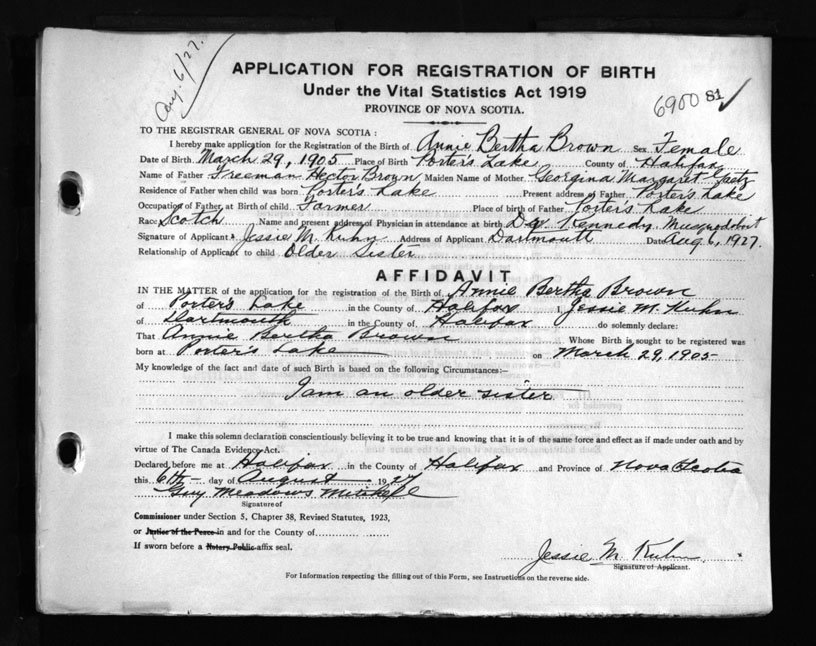 Aug. 6/27.
APPLICATION FOR REGISTRATION OF BIRTH
Under the Vital Statistics Act 1919
PROVINCE OF NOVA SCOTIA.
6900 81
TO THE REGISTRAR GENERAL OF NOVA SCOTIA :
I hereby make application for the Registration of the Birth of Annie Bertha Brown Sex Female
Date of Birth March 29, 1905 Place of Birth Porter's Lake County of Halifax
Name of Father Freeman Hector Brown Maiden Name of Mother Georgina Margaret Gaetz
Residence of Father when child was born Porter's Lake Present address of Father Porter's Lake
Occupation of Father, at Birth of child Farmer Place of birth of Father Porter's Lake
Race Scotch Name and present address of Physician in attendance at birth Dr. Kennedy, Musquodoboit
Signature of Applicant Jessie M. Kuhn Address of Applicant Dartmouth Date Aug 6, 1927.
Relationship of Applicant to child Older Sister
AFFIDAVIT
IN THE MATTER of the application for the registration of the Birth of Annie Bertha Brown
of Porter's Lake in the County of Halifax I, Jessie M. Kuhn
of Dartmouth in the County of Halifax do solemnly declare:
That Annie Bertha Brown Whose Birth is sought to be registered was
born at Porter's Lake on March 29, 1905
My knowledge of the fact and date of such Birth is based on the following Circumstances:—
I am an older sister
I make this solemn declaration conscientiously believing it to be true and knowing that it is of the same force and effect as if made under oath and by
virtue of The Canada Evidence Act.
Declared before me at Halifax in the County of Halifax and Province of Nova Scotia
this 6th day of August 1927
Guy Meadows Mitchell
Signature of
Commissioner under Section 5, Chapter 38, Revised Statutes, 1923,
or Justice of the Peace in and for the County of
If sworn before a Notary Public affix seal.
Jessie M. Kuhn
Signature of Applicant.
For Information respecting the filling out of this Form, see Instructions on the reverse side.